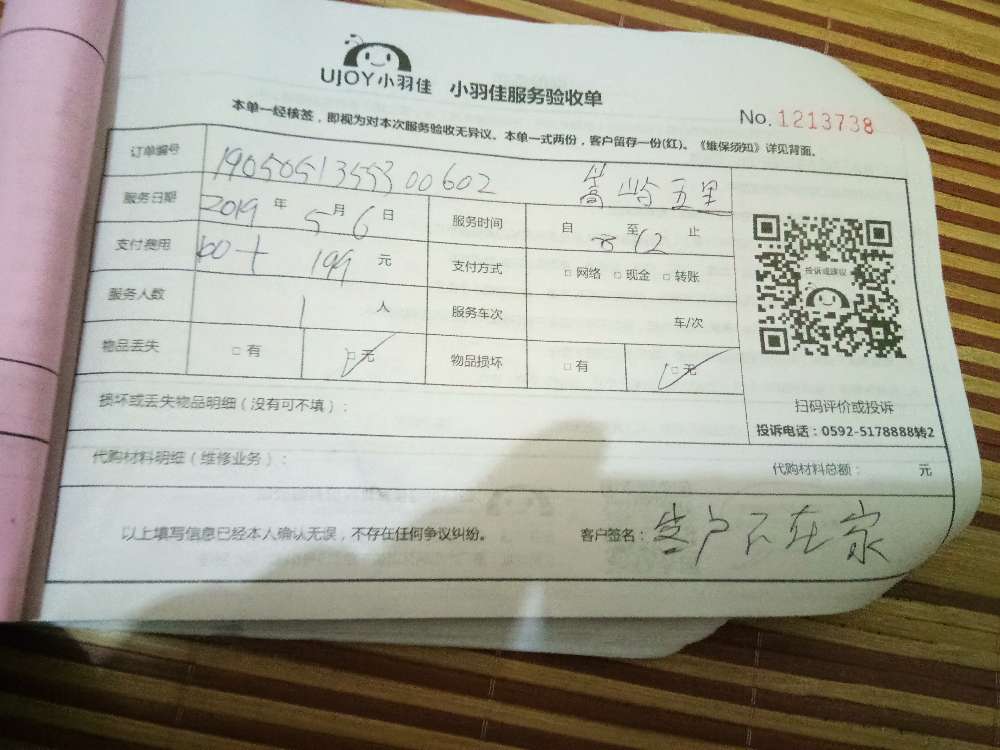 UJOY小羽佳 小羽佳服务验收单
No.1213738
本单一经核签，即视为对本次服务验收无异议。本单一式两份，客户留存一份(红)。《维保须知》详见背面。
订单编号 1905051355300602 五里
服务日期 2019年5月6日 服务时间 自 8 至 12 止
支付费用 199 元 支付方式 □网络 □现金 □转账
服务人数 1 人 服务车次 车/次
物品丢失 □有 □无 物品损坏 □有 □无
投诉或建议
扫码评价或投诉
投诉电话：0592-5178888转2
损坏或丢失物品明细（没有可不填）：
代购材料明细（维修业务）： 代购材料总额： 元
以上填写信息已经本人确认无误，不存在任何争议纠纷。 客户签名：客户不在家